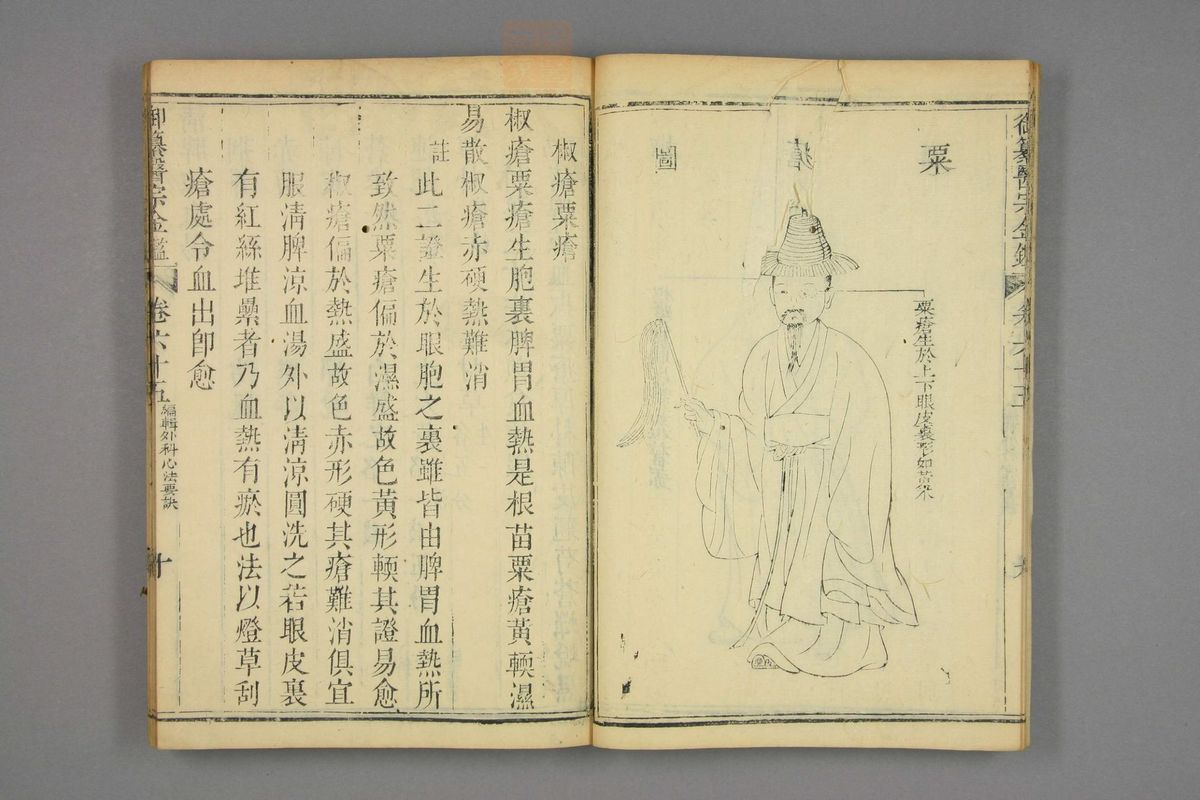 御纂醫宗金鑑 卷六十五 九
粟瘡圖
粟瘡生於上下眼皮裏形如黃米
椒瘡粟瘡
椒瘡粟瘡生胞裏脾胃血熱是根苗粟瘡黃輭濕
易散椒瘡赤硬熱難消
註此二證生於眼胞之裏雖皆由脾胃血熱所
致然粟瘡偏於濕盛故色黃形輭其證易愈
椒瘡偏於熱盛故色赤形硬其瘡難消俱宜
服淸脾涼血湯外以淸涼圓洗之若眼皮裏
有紅絲堆纍者乃血熱有瘀也法以燈草刮
瘡處令血出卽愈
御纂醫宗金鑑 卷六十五 編輯外科心法要訣 十